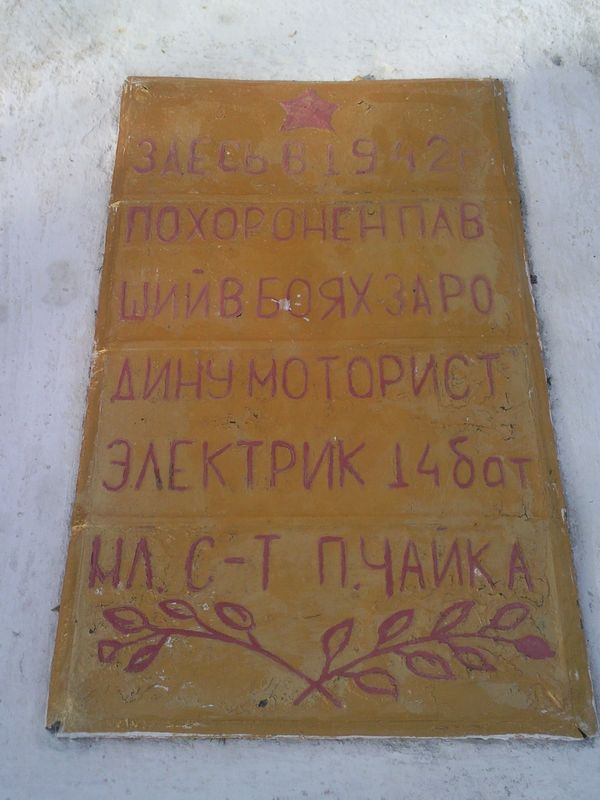 ЗДЕСЬ В 1942г
ПОХОРОНЕН ПАВ
ШИЙ В БОЯХ ЗА РО
ДИНУ МОТОРИСТ
ЭЛЕКТРИК 14 бат
МЛ. С-Т П.ЧАЙКА